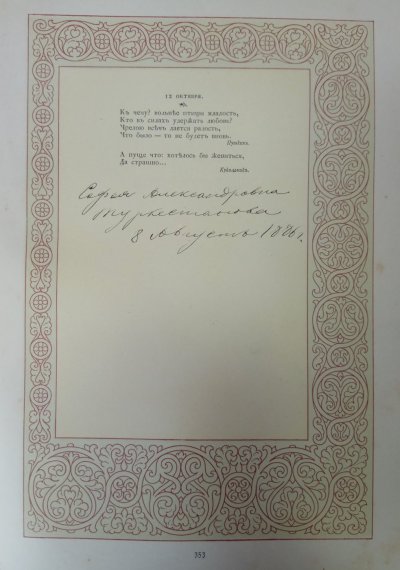 12 ОКТЯБРЯ.
Къ чему? вольнѣе птицы младость,
Кто въ силахъ удержать любовь?
Чредою всѣмъ дается радость,
Что было — то не будетъ вновь.
Пушкинъ.
А пуще что: хотѣлось бы жениться,
Да страшно...
Софья Александровна
Туркестанова
8 Августъ 1886 г.
353